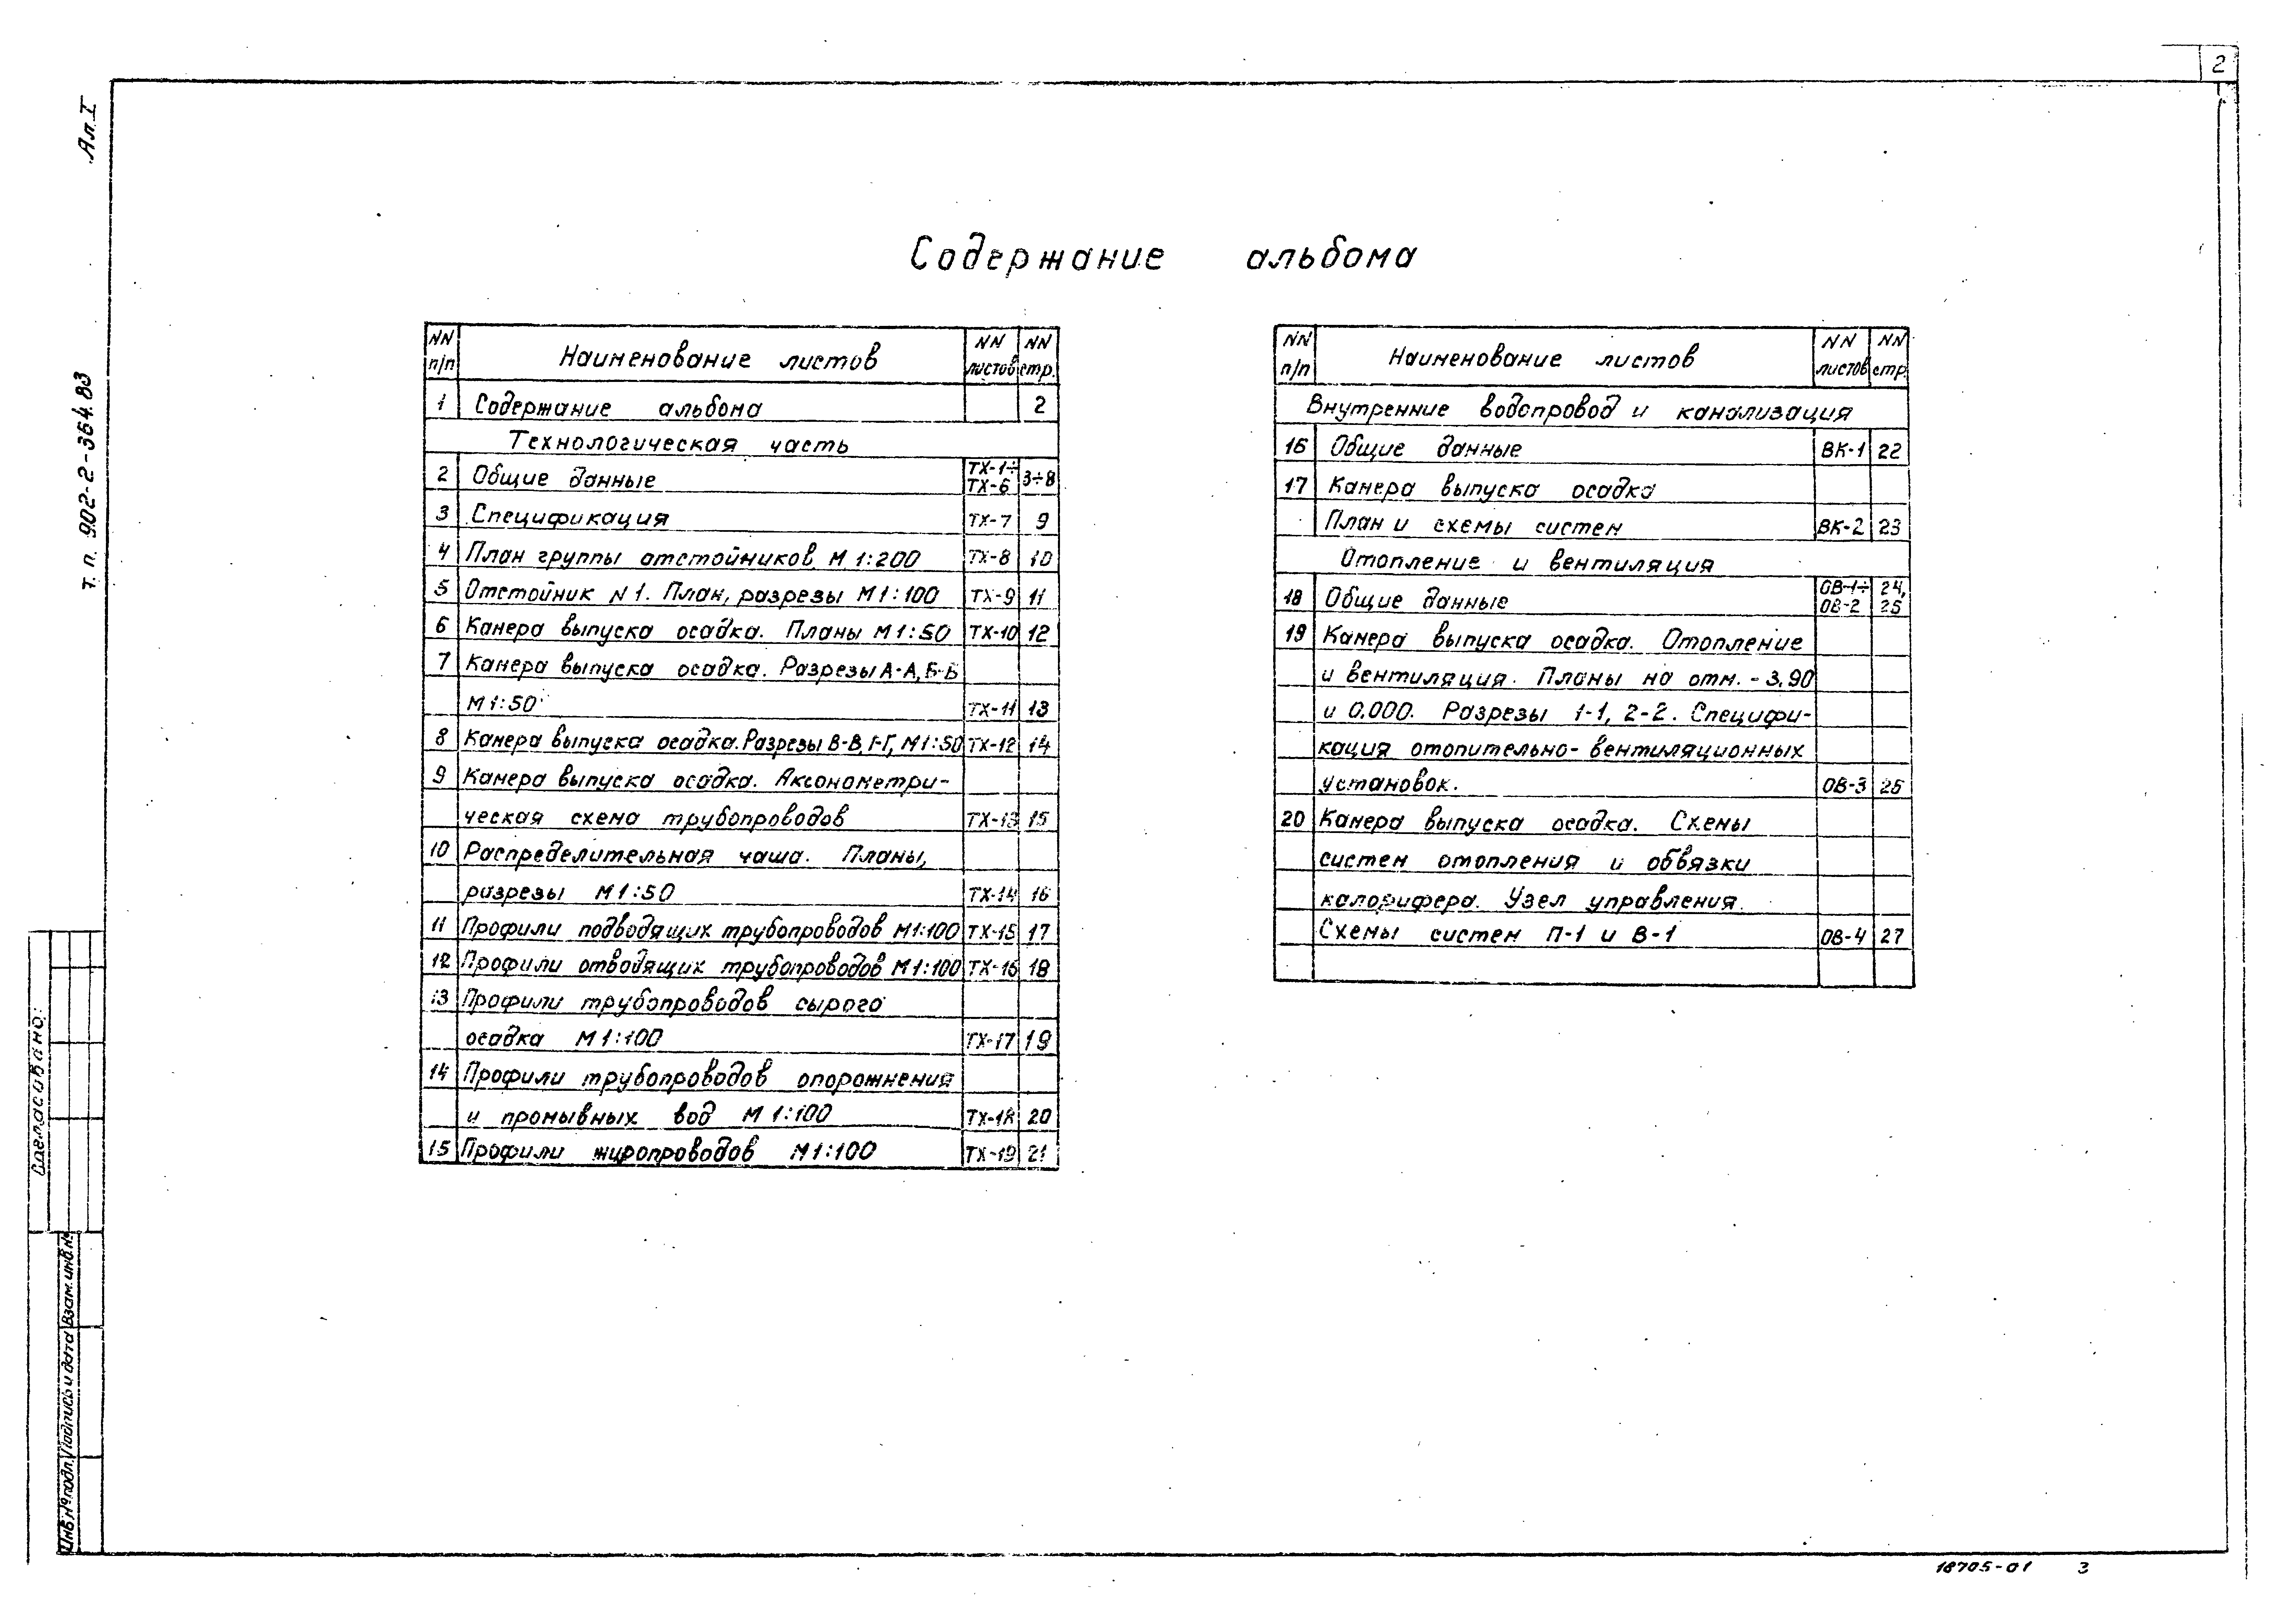 2
Ал. I
т. п. 902-2-364.83
Содержание альбома
NN п/п Наименование листов NN листов NN стр.
1 Содержание альбома 2
Технологическая часть
2 Общие данные ТХ-1÷ ТХ-6 3÷8
3 Спецификация ТХ-7 9
4 План группы отстойников М 1:200 ТХ-8 10
5 Отстойник N 1. План, разрезы М 1:100 ТХ-9 11
6 Камера выпуска осадка. Планы М 1:50 ТХ-10 12
7 Камера выпуска осадка. Разрезы А-А, Б-Б
М 1:50 ТХ-11 13
8 Камера выпуска осадка. Разрезы В-В, Г-Г, М 1:50 ТХ-12 14
9 Камера выпуска осадка. Аксонометри-
ческая схема трубопроводов ТХ-13 15
10 Распределительная чаша. Планы,
разрезы М 1:50 ТХ-14 16
11 Профили подводящих трубопроводов М 1:100 ТХ-15 17
12 Профили отводящих трубопроводов М 1:100 ТХ-16 18
13 Профили трубопроводов сырого
осадка М 1:100 ТХ-17 19
14 Профили трубопроводов опорожнения
и промывных вод М 1:100 ТХ-18 20
15 Профили жиропроводов М 1:100 ТХ-19 21
NN п/п Наименование листов NN листов NN стр.
Внутренние водопровод и канализация
16 Общие данные ВК-1 22
17 Камера выпуска осадка
План и схемы систем ВК-2 23
Отопление и вентиляция
18 Общие данные ОВ-1÷ ОВ-2 24, 25
19 Камера выпуска осадка. Отопление
и вентиляция. Планы на отм. -3.90
и 0.000. Разрезы 1-1, 2-2. Специфи-
кация отопительно-вентиляционных
установок. ОВ-3 26
20 Камера выпуска осадка. Схемы
систем отопления и обвязки
калорифера. Узел управления.
Схемы систем П-1 и В-1 ОВ-4 27
Согласовано:
Взам. инв. №
Подпись и дата
Инв. № подл.
18705-01 3